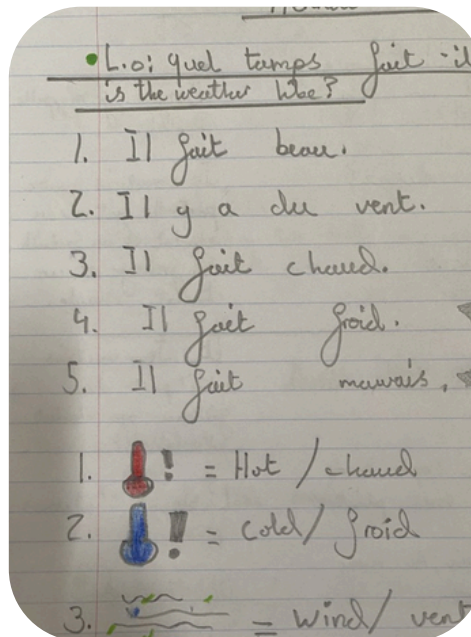 L.o: quel tamps fait-il
is the weather like?
1. Il fait beau.
2. Il y a du vent.
3. Il fait chaud.
4. Il fait froid.
5. Il fait mauvais.
1. ! = Hot / chaud
2. ! = cold / froid
3. = wind / vent